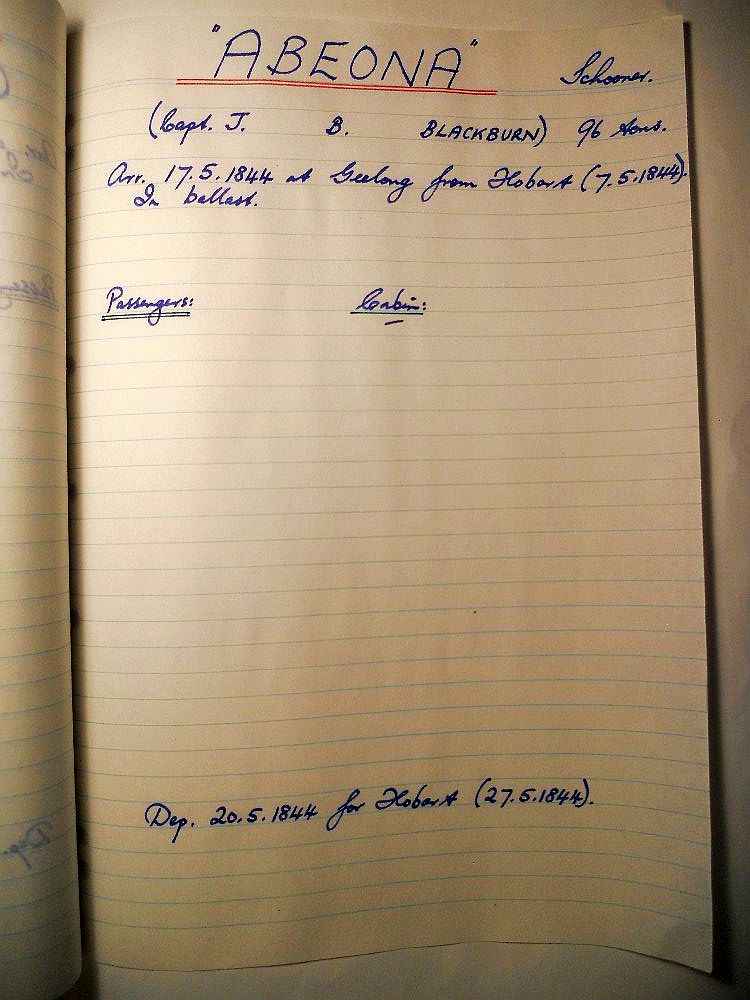 "ABEONA" Schooner.
(Capt. J. B. BLACKBURN) 96 tons.
Arr. 17.5.1844 at Geelong from Hobart (7.5.1844).
In ballast.
Passengers: Cabin:
Dep. 20.5.1844 for Hobart (27.5.1844).